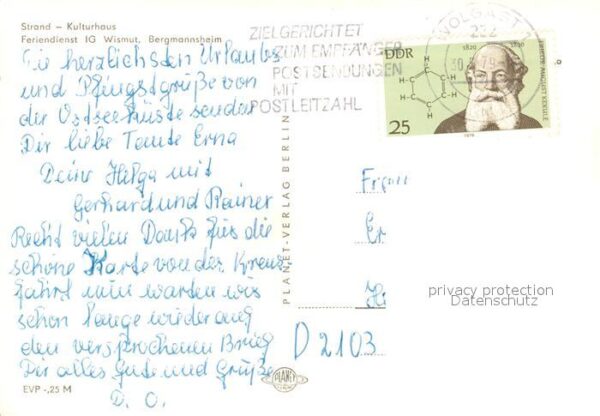 Strand – Kulturhaus
Feriendienst IG Wismut, Bergmannsheim
Die herzlichsten Urlaubs
und Pfingstgrüße von
der Ostseeküste sendet
Dir liebe Tante Erna
Deine Helga mit
Gerhard und Rainer
Recht vielen Dank für die
schöne Karte von der Kreuz
fahrt nun warten wir
schon lange wieder auf
den versprochenen Brief
Dir alles Gute und Grüße
D. O.
EVP -,25 M
PLANET-VERLAG BERLIN
PLANET
ZIELGERICHTET
ZUM EMPFÄNGER
POSTSENDUNGEN
MIT
POSTLEITZAHL
WOLGAST 1
222
30.5.79
DDR
1829 1896
FRIEDRICH AUGUST KEKULÉ
25
1979
Frau
Er
Hi
D 2103
privacy protection
Datenschutz